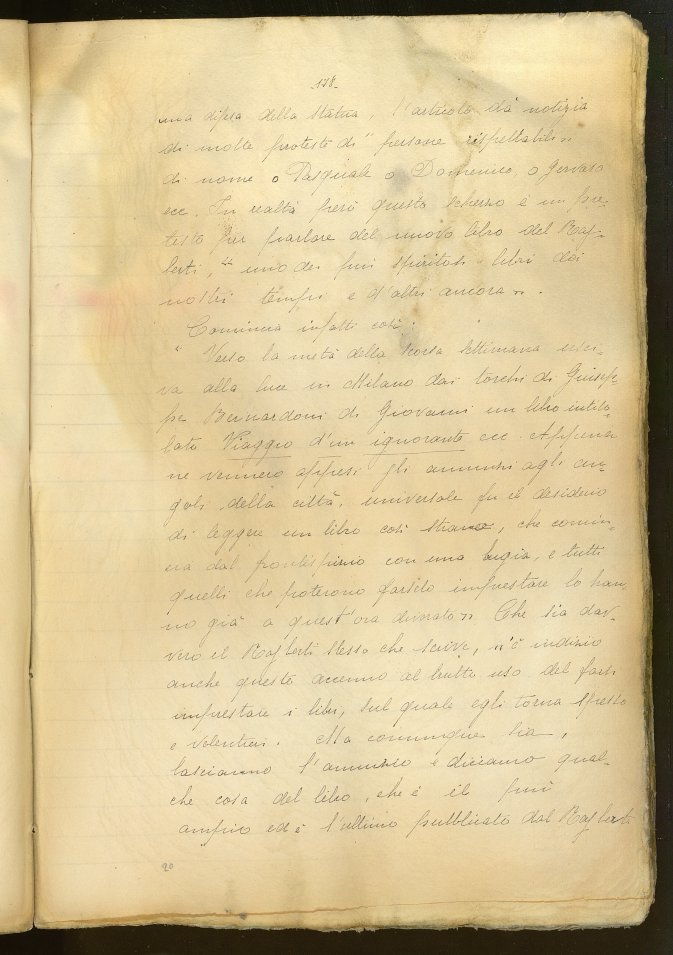 -178-
una difesa della statua, l'articolo dà notizia
di molte proteste di "persone rispettabili"
di nome o Pasquale o Domenico, o Gervaso
ecc. In realtà però questo scherzo è un pre-
testo per parlare del nuovo libro del Raj-
berti, "uno dei più spiritosi libri dei
nostri tempi e d'altri ancora".
Comincia infatti così:
"Verso la metà della scorsa settimana usci-
va alla luce in Milano dai torchi di Giusep-
pe Bernardoni di Giovanni un libro intito-
lato Viaggio d'un ignorante ecc. Appena
ne vennero appesi gli annunzi agli an-
goli della città, universale fu il desiderio
di leggere un libro così strano, che comin-
cia dal frontispizio con una bugia, e tutti
quelli che poterono farselo imprestare lo han-
no già a quest'ora divorato" Che sia dav-
vero il Rajberti stesso che scrive, n'è indizio
anche questo accenno al brutto uso del farsi
imprestare i libri, sul quale egli torna spesso
e volentieri. Ma comunque sia,
lasciamo l'annunzio e diciamo qual-
che cosa del libro, che è il più
ampio ed è l'ultimo pubblicato dal Rajberti
20